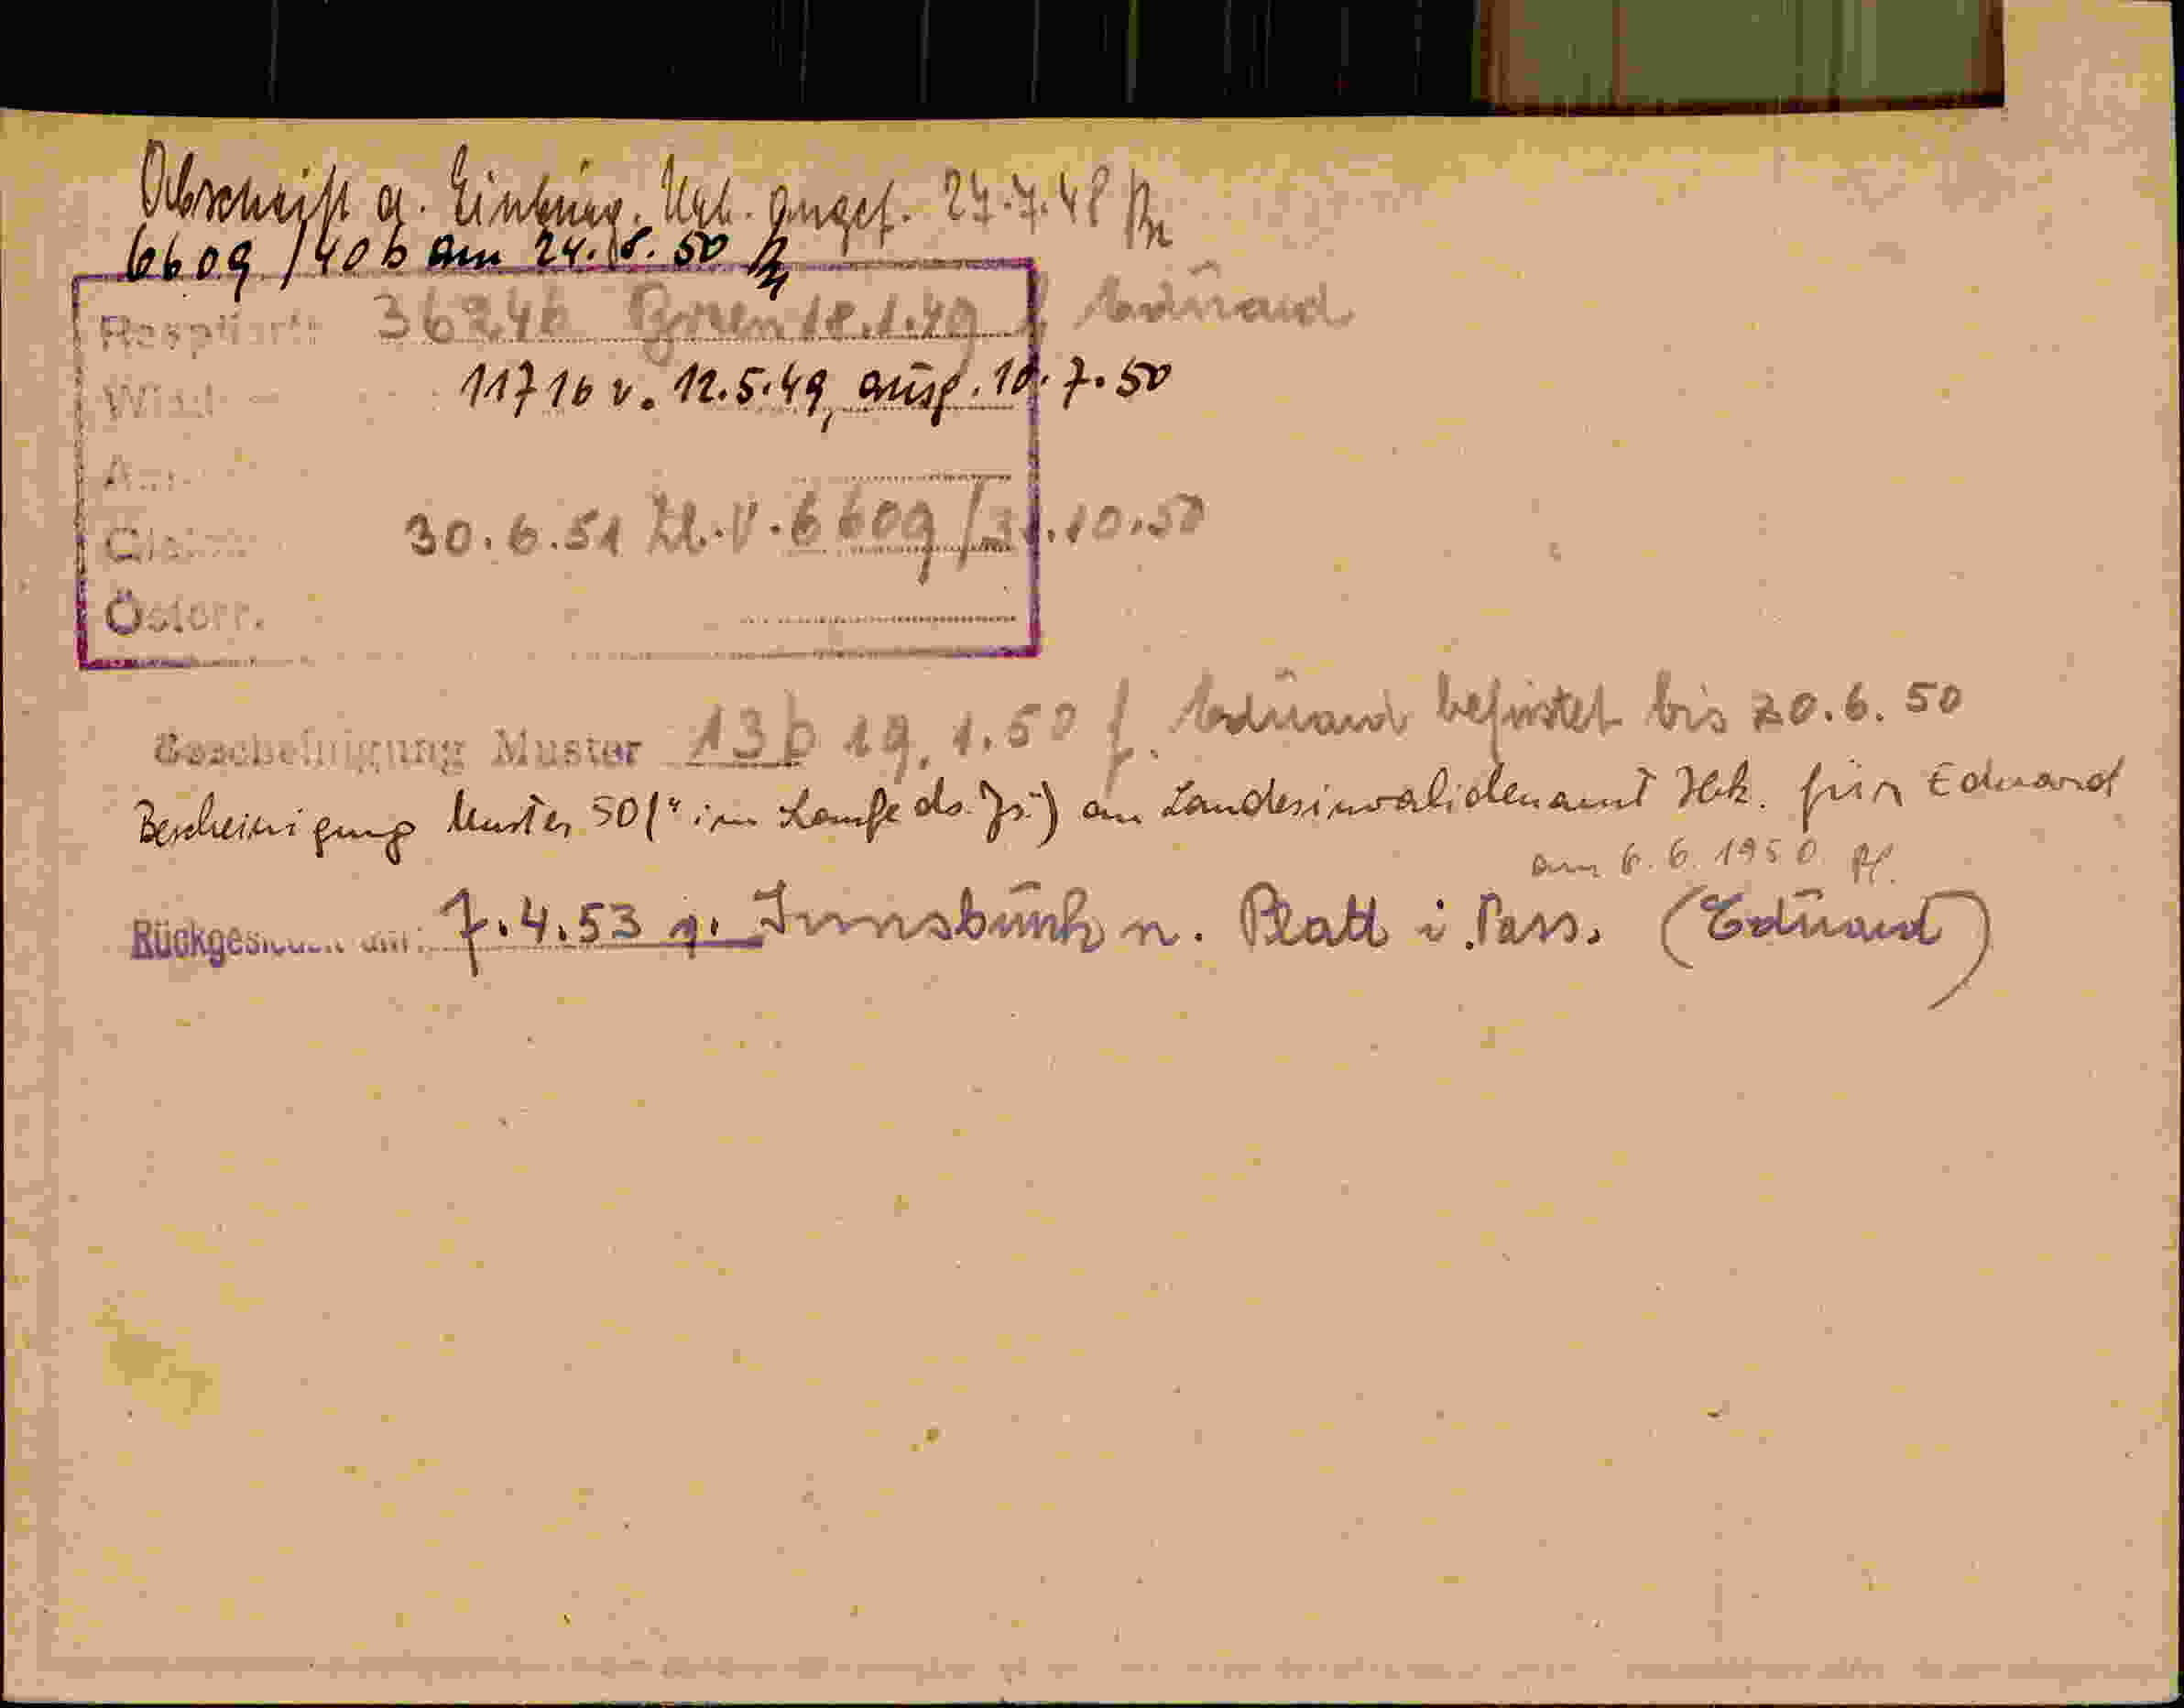 Abschrift a. Einbürg. Urk. angef. 27.7.48
6609/40b am 24.8.50
36246 Bozen 18.1.49 f. Eduard
11716 v. 12.5.49, ausg. 10.7.50
30.6.51 Zl. V. 6609/31.10.50
Österr.
Bescheinigung Muster 13b 19.1.50 f. Eduard befristet bis 30.6.50
Bescheinigung Muster 50 („im Laufe ds. Js.") an Landesinvalidenamt Ibk. für Eduard
am 6.6.1950 Pf.
Rückgesiedelt am: 7.4.53 v. Innsbruck n. Platt i. Pass. (Eduard)